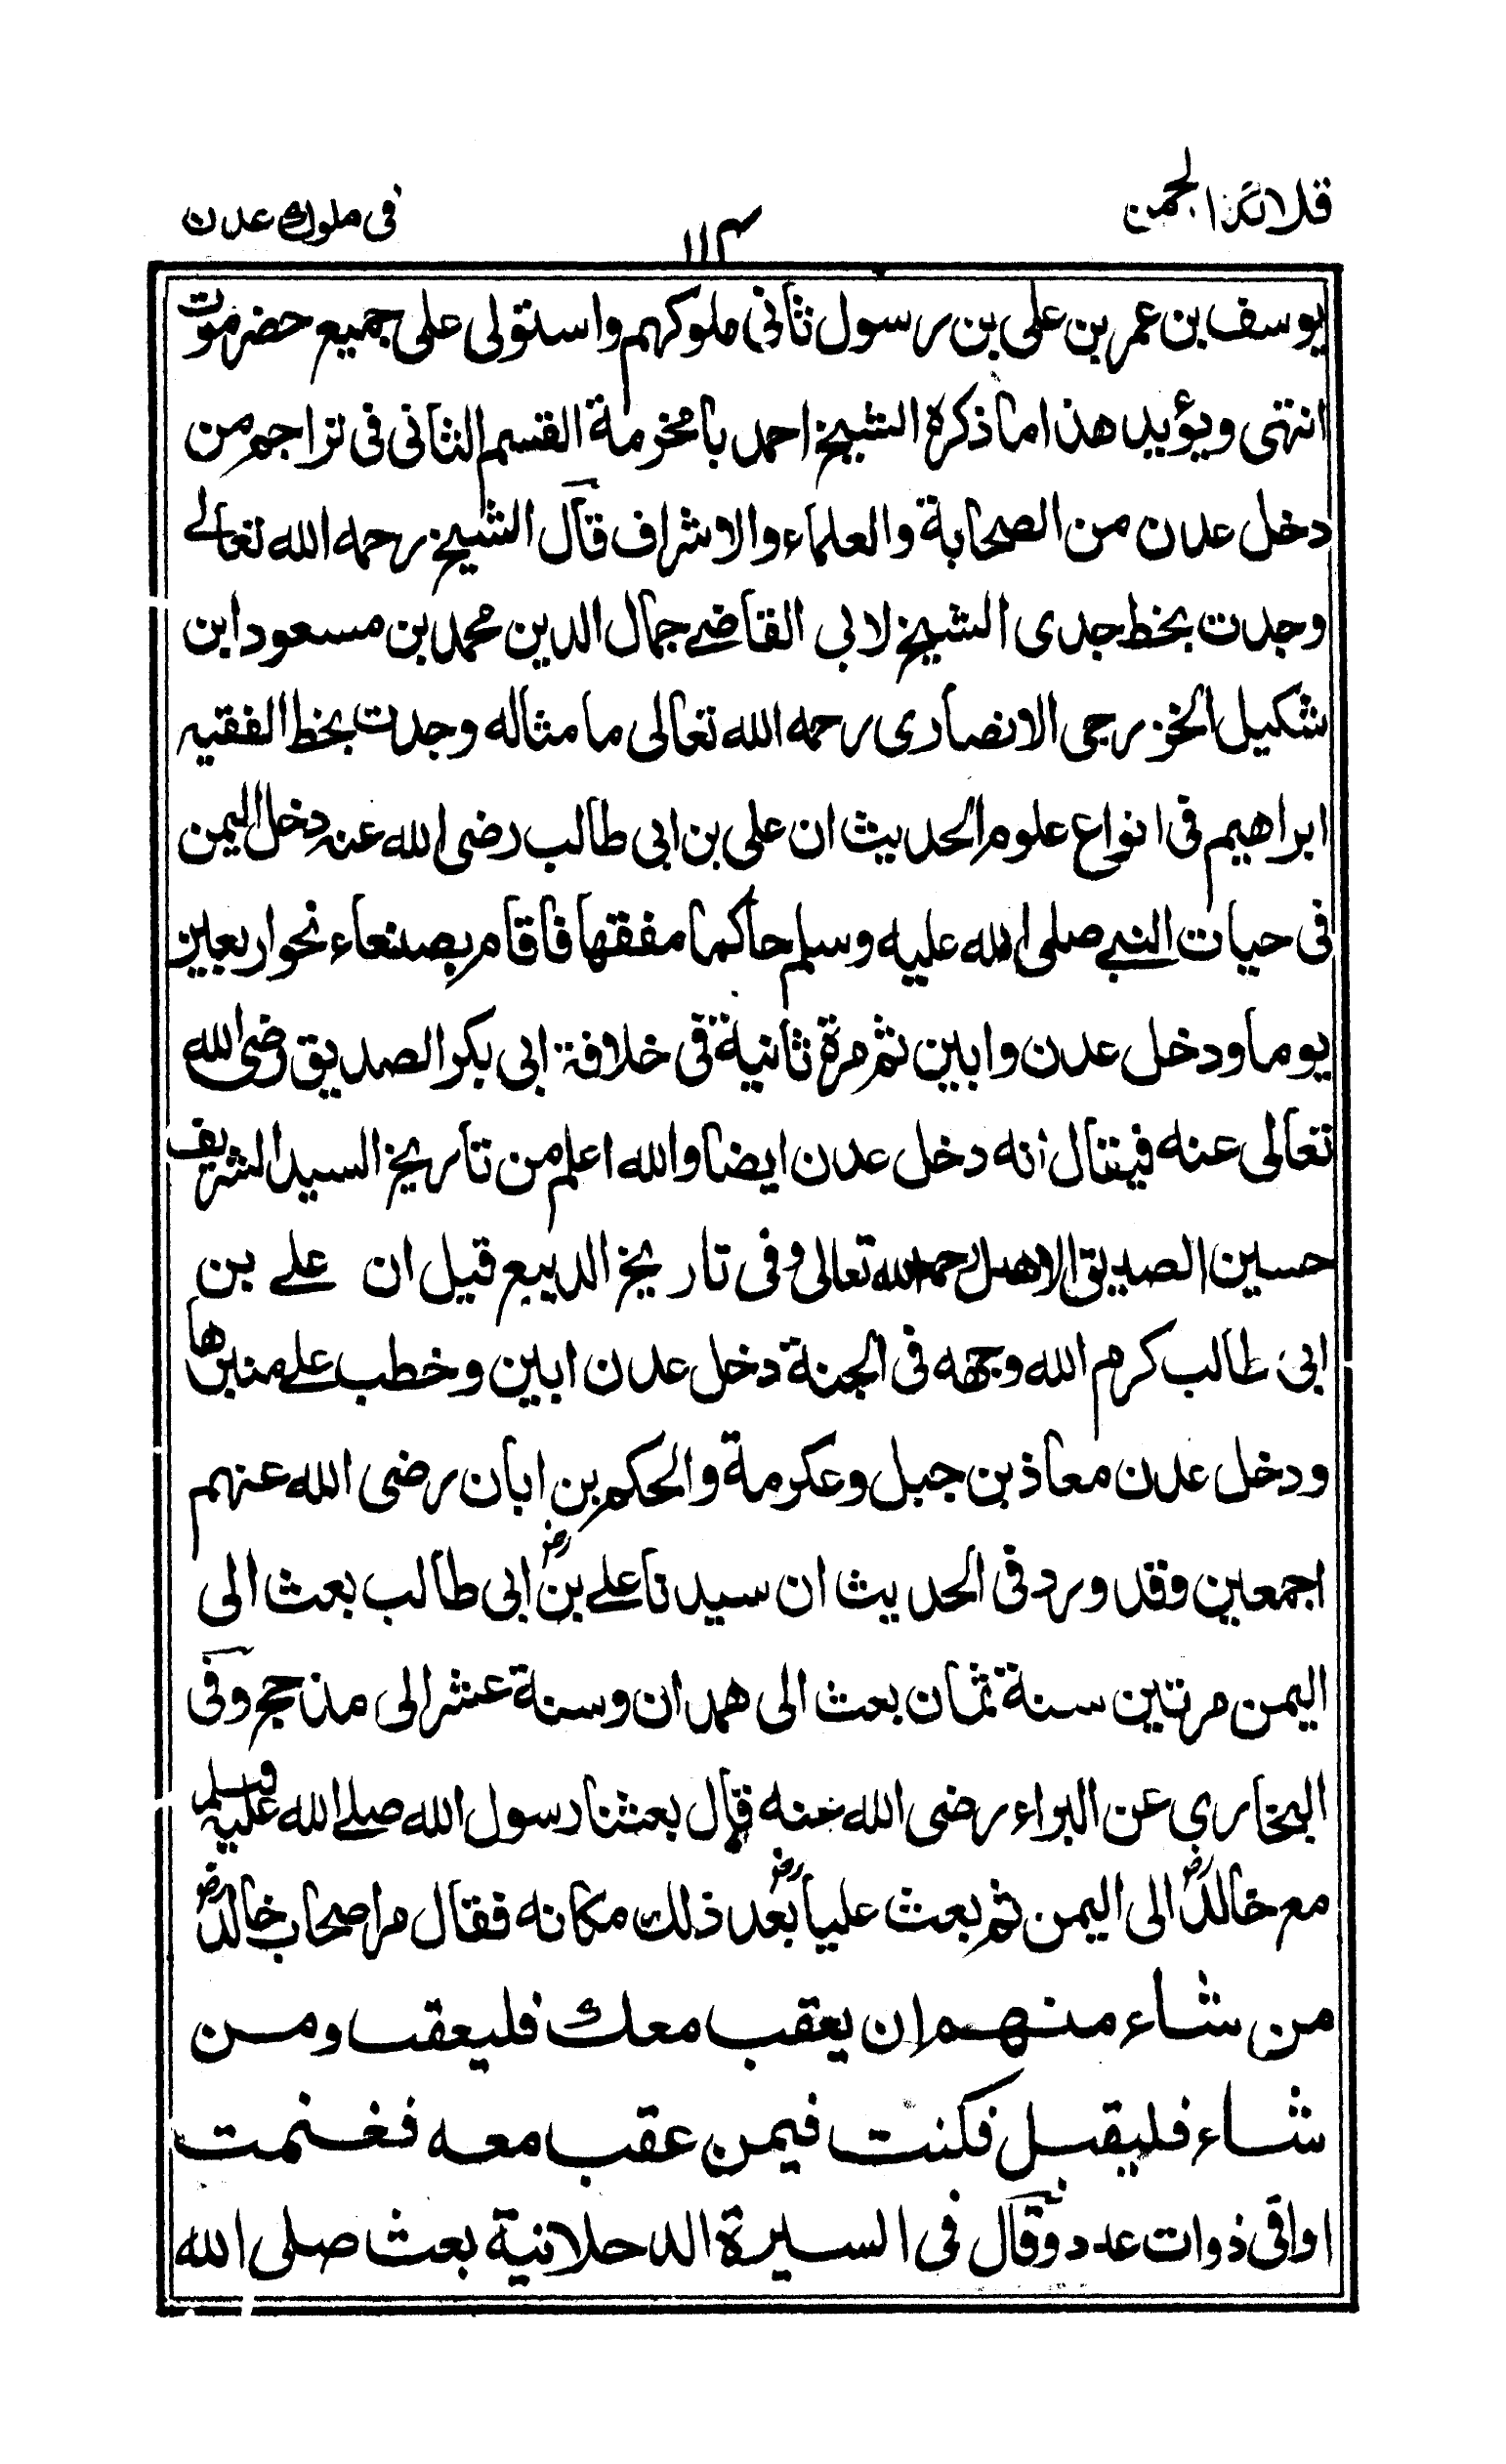 قلائد الجمن
١١٤
فى ملوك عدن
يوسف بن عمر بن على بن رسول ثانى ملوكهم واستولى على جميع حضرموت
انتهى ويؤيد هذا ما ذكرة الشيخ احمد با مخرمة القسم الثانى فى تراجم من
دخل عدن من الصحابة والعلماء والاشراف قال الشيخ رحمه الله تعالے
وجدت بخط جدى الشيخ لابى القاضے جمال الدين محمد بن مسعود ابن
شكيل الخزرجى الانصارى رحمه الله تعالى ما مثاله وجدت بخط الفقيه
ابراهيم فى انواع علوم الحديث ان على بن ابى طالب رضى الله عنه دخل اليمن
فى حيات النبے صلى الله عليه وسلم حاكما مفقها فاقام بصنعاء نحو اربعين
يوما ودخل عدن وابين ثم مرة ثانية فى خلافة ابى بكر الصديق رضى الله
تعالى عنه فيقال انه دخل عدن ايضا والله اعلم من تاريخ السيد الشريف
حسين الصديق الاهدل رحمه الله تعالى وفى تاريخ الديبع قيل ان علے بن
ابى طالب كرم الله وجهه فى الجنة دخل عدن ابين وخطب علے منبرها
ودخل عدن معاذ بن جبل وعكرمة والحكم بن ابان رضى الله عنهم
اجمعين وقد ورد فى الحديث ان سيدنا علے بن ابى طالب رض بعث الى
اليمن مرتين سنة ثمان بعث الى همدان وسنة عشر الى مذحج وفى
البخارى عن البراء رضى الله عنه قال بعثنا رسول الله صلے الله عليه وسلم
مع خالد رض الى اليمن ثم بعث عليا رض بعد ذلك مكانه فقال مر اصحاب خالد رض
من شاء منهم ان يعقب معك فليعقب ومن
شاء فليقبل فكنت فيمن عقب معه فغنمت
اواقى ذوات عدد وقال فى السيرة الدحلانية بعث صلى الله